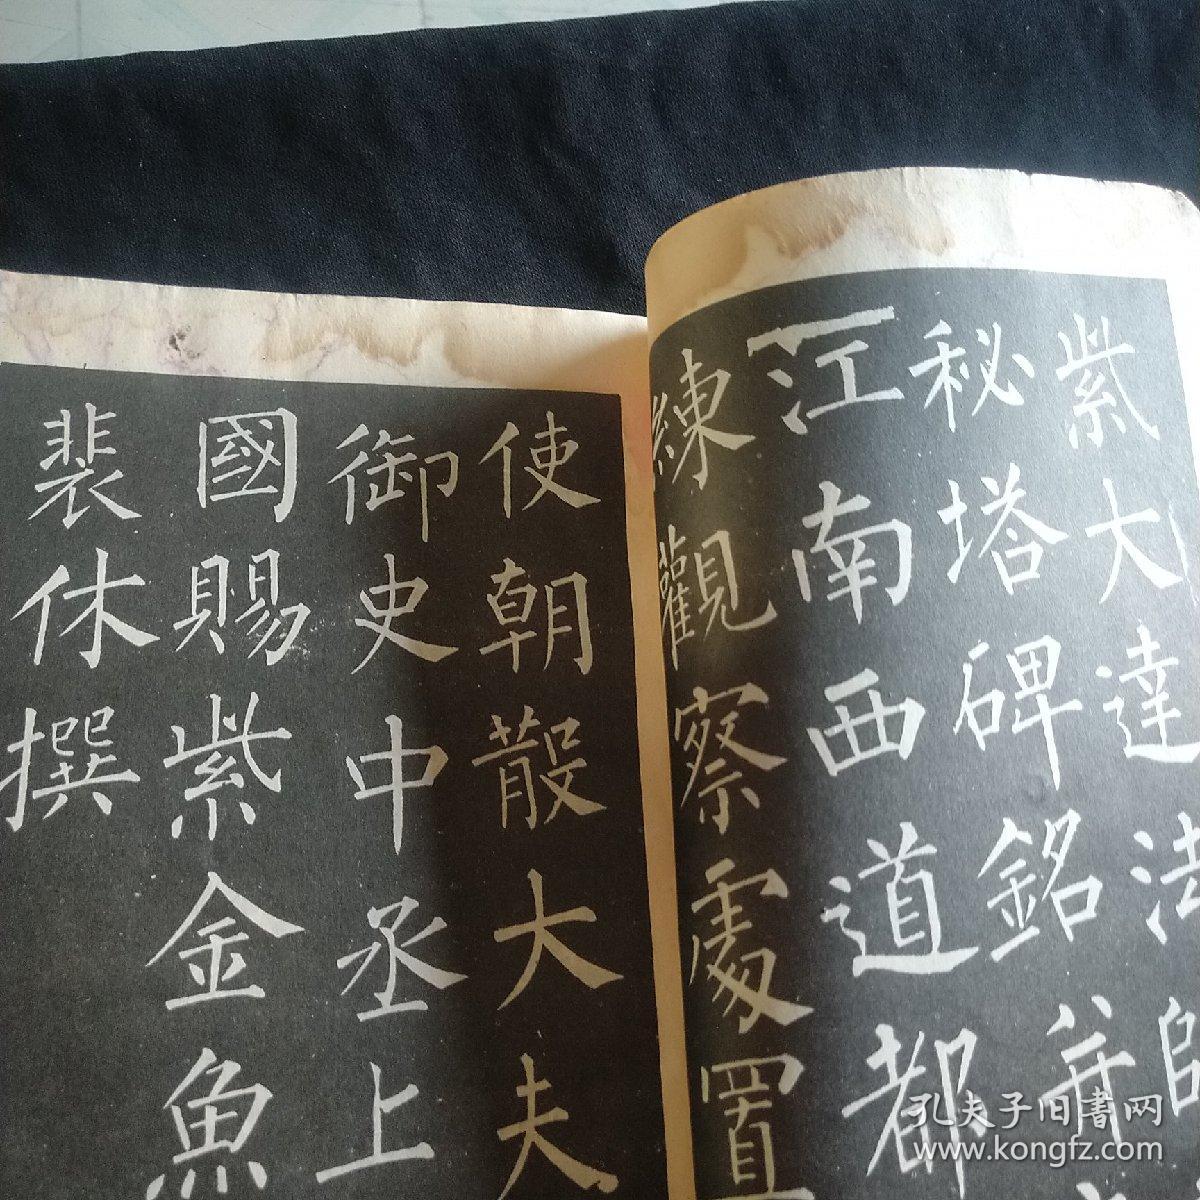 紫大達法師
秘塔碑銘并
江南西道都
練觀察處置
使朝散大夫
御史中丞上
國賜紫金魚
裴休撰
孔夫子旧書网
www.kongfz.com